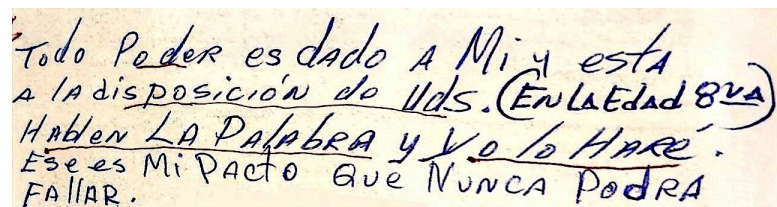 Todo Poder es dado A Mi y estA
A lA disposición de Uds. (EN LA EdAd 8va)
HAblen LA PAlAbRA y Yo lo HARé.
Ese es Mi PActo Que NUNCA PodRA
FAllAR.